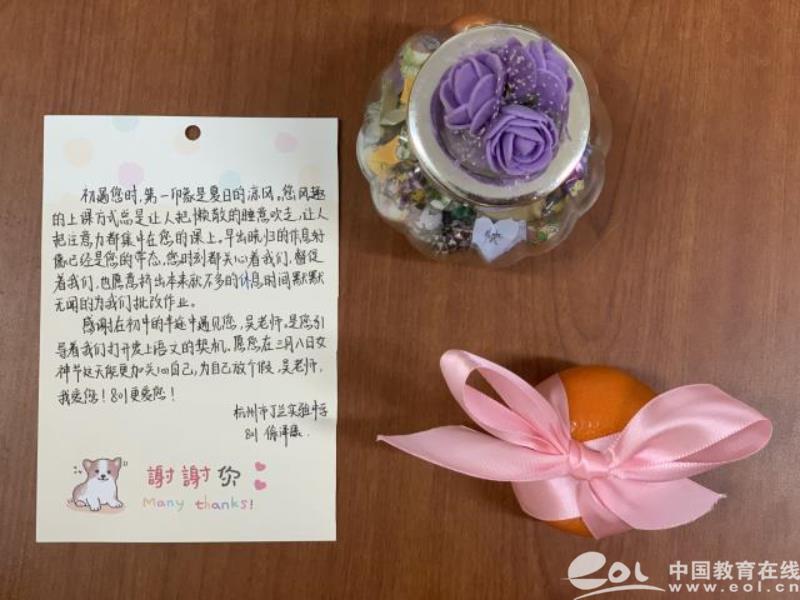 初遇您时,第一印象是夏日的凉风。您风趣
的上课方式总是让人把懒散的睡意吹走,让人
把注意力都集中在您的课上。早出晚归的作息好
像已经是您的常态,您时刻都关心着我们,督促
着我们,也愿意挤出本来就不多的休息时间默默
无闻的为我们批改作业。
感谢在初中的年途中遇见您,吴老师。是您引
导着我们打开爱上语文的契机。愿您在三月八日女
神节这天能更加关心自己,为自己放个假,吴老师,
我爱您!801更爱您!
杭州市丁兰实验中学
801
謝謝你
Many thanks!
eol 中国教育在线
www.eol.cn